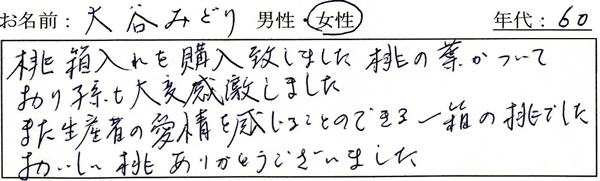 お名前: 大谷みどり 男性・女性 年代: 60
桃箱入れを購入致しました 桃の葉がついて
おり子孫も大変感激しました
また生産者の愛情を感じることのできる一箱の桃でした
おいしい桃ありがとうございました